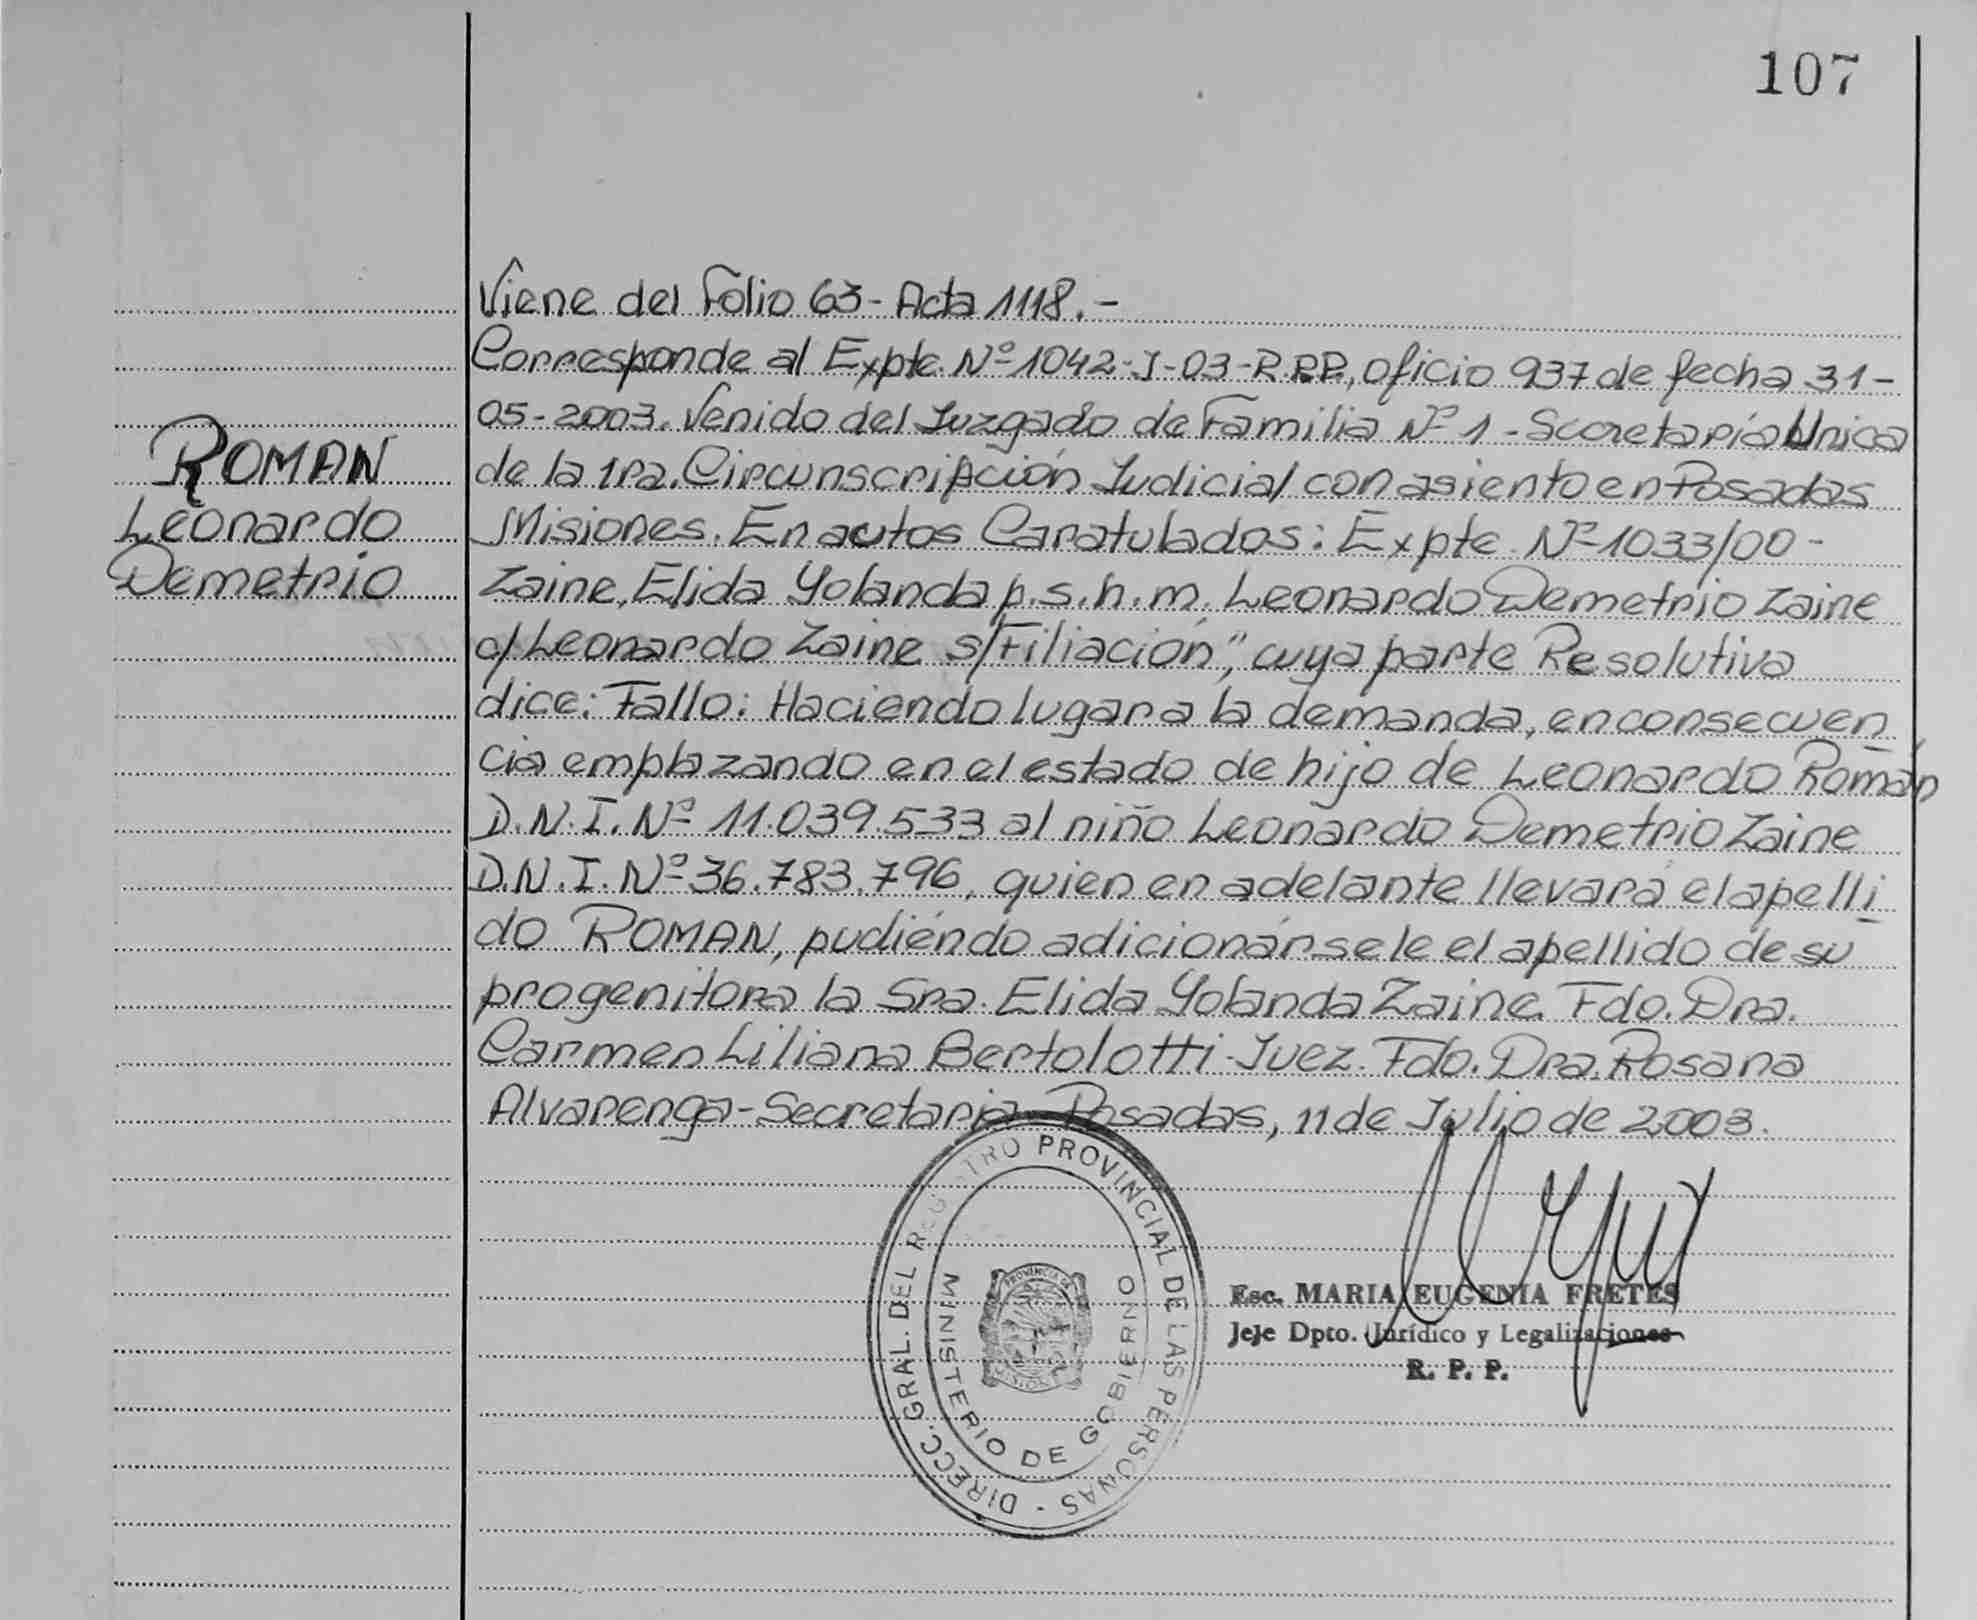 107
Viene del Folio 63- Acta 1118.-
Corresponde al Expte. Nº 1042-J-03-R.P.P., oficio 937 de fecha 31-
05-2003. Venido del Juzgado de Familia Nº 1 - Secretaría Unica
de la 1ra. Circunscripción Judicial con asiento en Posadas
Misiones. En autos Caratulados: Expte. Nº 1033/00-
Zaine, Elida Yolanda p.s.h.m. Leonardo Demetrio Zaine
c/ Leonardo Zaine s/Filiación", cuya parte Resolutiva
dice: Fallo: Haciendo lugar a la demanda, en consecuen
cia emplazando en el estado de hijo de Leonardo Román
D.N.I. Nº 11.039.533 al niño Leonardo Demetrio Zaine
D.N.I. Nº 36.783.796, quien en adelante llevará el apelli
do ROMAN, pudiéndo adicionársele el apellido de su
progenitora la Sra. Elida Yolanda Zaine. Fdo. Dra.
Carmen Liliana Bertolotti-Juez. Fdo. Dra. Rosana
Alvarenga-Secretaria. Posadas, 11 de Julio de 2003.
ROMAN
Leonardo
Demetrio
DIRECC. GRAL. DEL REGISTRO PROVINCIAL DE LAS PERSONAS -
MINISTERIO DE GOBIERNO
PROVINCIA DE
MISIONES
Esc. MARIA EUGENIA FRETES
Jefe Dpto. Jurídico y Legalizaciones
R. P. P.